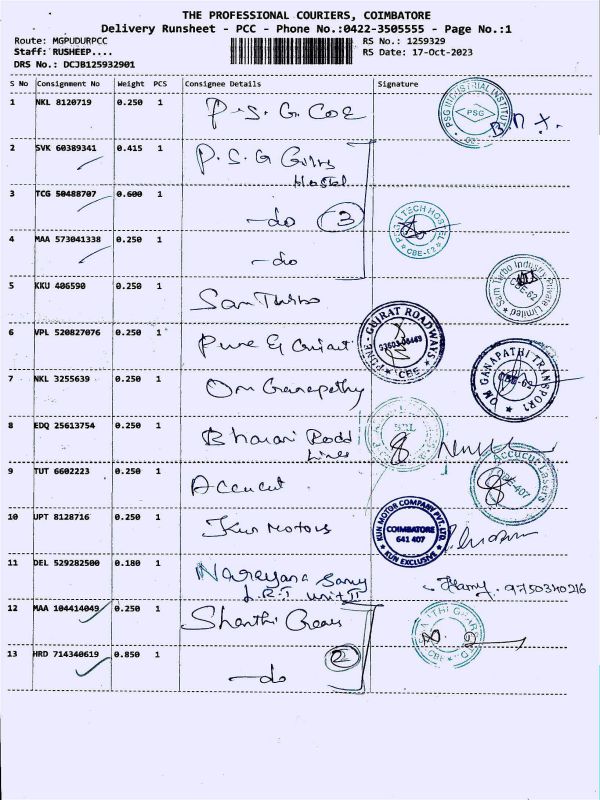 THE PROFESSIONAL COURIERS, COIMBATORE
Delivery Runsheet - PCC - Phone No.:0422-3505555 - Page No.:1
Route: MGPUDURPCC
RS No.: 1259329
Staff: RUSHEEP....
RS Date: 17-Oct-2023
DRS No.: DCJB125932901
S No Consignment No Weight PCS Consignee Details Signature
1 NKL 8120719 0.250 1 P.S.G. COE
PSG INDUSTRIAL INSTITUTE
PSG
2 SVK 60389341 0.415 1 P.S.G
Hostel
3 TCG 50488707 0.600 1 -do 3
TECH HOSTEL
CBE-62
4 MAA 573041338 0.250 1 -do
5 KKU 406590 0.250 1 Sam Turbo
Sam Turbo Industry Private Limited
CBE-62
6 VPL 520827076 0.250 1 Pune G Gujrat
PUNE - GUJRAT ROADWAYS
CBE
7 NKL 3255639 0.250 1 Om Ganapathy
OM GANAPATHI TRANSPORT
8 EDQ 25613754 0.250 1
Lines
9 TUT 6602223 0.250 1 Accucut
Accucut Lasers
10 UPT 8128716 0.250 1 Kun Motors
KUN MOTOR COMPANY PVT. LTD.
COIMBATORE
641 407
KUN EXCLUSIVE
11 DEL 529282500 0.180 1 Narayana Samy
Unit II
9750340216
12 MAA 104414049 0.250 1 Shanthi Gears
CBE
13 HRD 714340619 0.850 1 -do 2